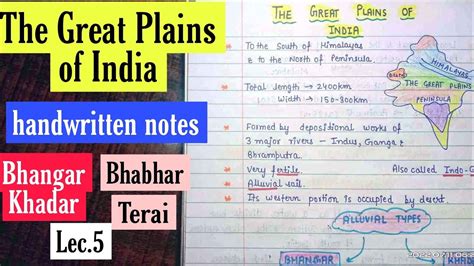 The Great Plains
of India
handwritten notes
Bhangar
Khadar
Bhabhar
Terai
Lec.5
THE GREAT PLAINS OF
INDIA
To the South of Himalayas
& to the North of Peninsula
Total length → 2400km
Width → 150-300km
Formed by depositional works of
3 major rivers - Indus, Ganga &
Bhramputra.
Very fertile
Also called Indo-G
Alluvial soil.
Its western portion is occupied by desert.
HIMALAYAS
THE GREAT PLAINS
PENINSULA
ALLUVIAL TYPES
BHANGAR
KHAD